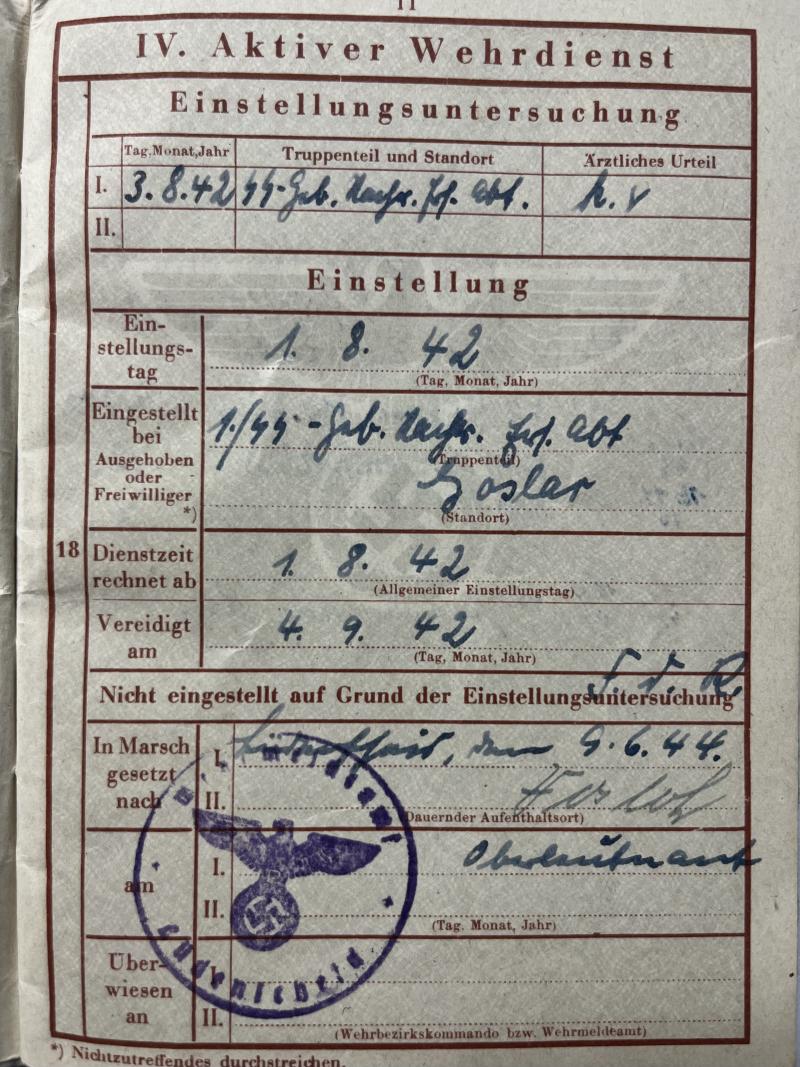 11
IV. Aktiver Wehrdienst
Einstellungsuntersuchung
Tag.Monat,Jahr Truppenteil und Standort Ärztliches Urteil
I. 3.8.42 SS-Geb. Nachr. Ers. Abt. k.v
II.
Einstellung
Ein-
stellungs-
tag
1. 8. 42
(Tag, Monat, Jahr)
Eingestellt
bei
Ausgehoben
oder
Freiwilliger
*)
1./SS-Geb. Nachr. Ers. Abt
(Truppenteil)
Goslar
(Standort)
18
Dienstzeit
rechnet ab
1. 8. 42
(Allgemeiner Einstellungstag)
Vereidigt
am
4. 9. 42
(Tag, Monat, Jahr)
F. d. R.
Nicht eingestellt auf Grund der Einstellungsuntersuchung
In Marsch
gesetzt
nach
I. Lüdenscheid, den 9.6.44.
II.
(Dauernder Aufenthaltsort)
am
I. Oberleutnant
II.
(Tag. Monat, Jahr)
Wehrmeldeamt
Lüdenscheid
Über-
wiesen
an
II.
(Wehrbezirkskommando bzw. Wehrmeldeamt)
*) Nichtzutreffendes durchstreichen.